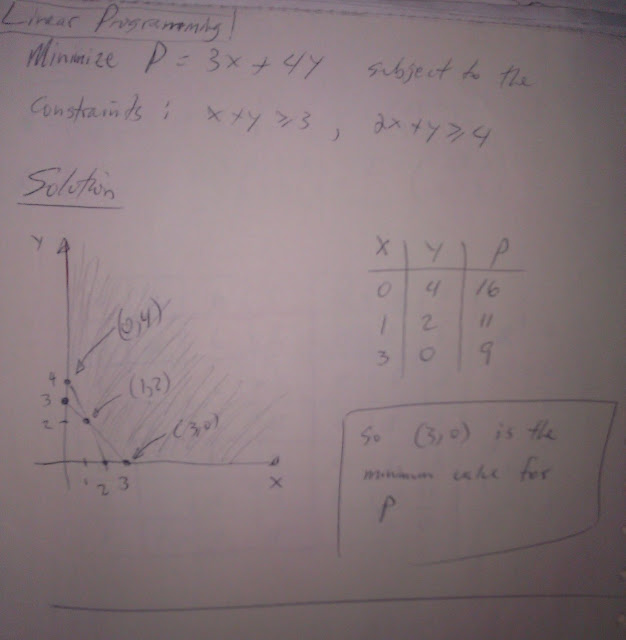 Linear Programming!
Minimize P = 3x + 4y subject to the
Constraints : x + y ⩾ 3 , 2x + y ⩾ 4
Solution
Y
(0,4)
(1,2)
(3,0)
4
3
2
1 2 3
X
X Y P
0 4 16
1 2 11
3 0 9
So (3,0) is the
minimum value for
P